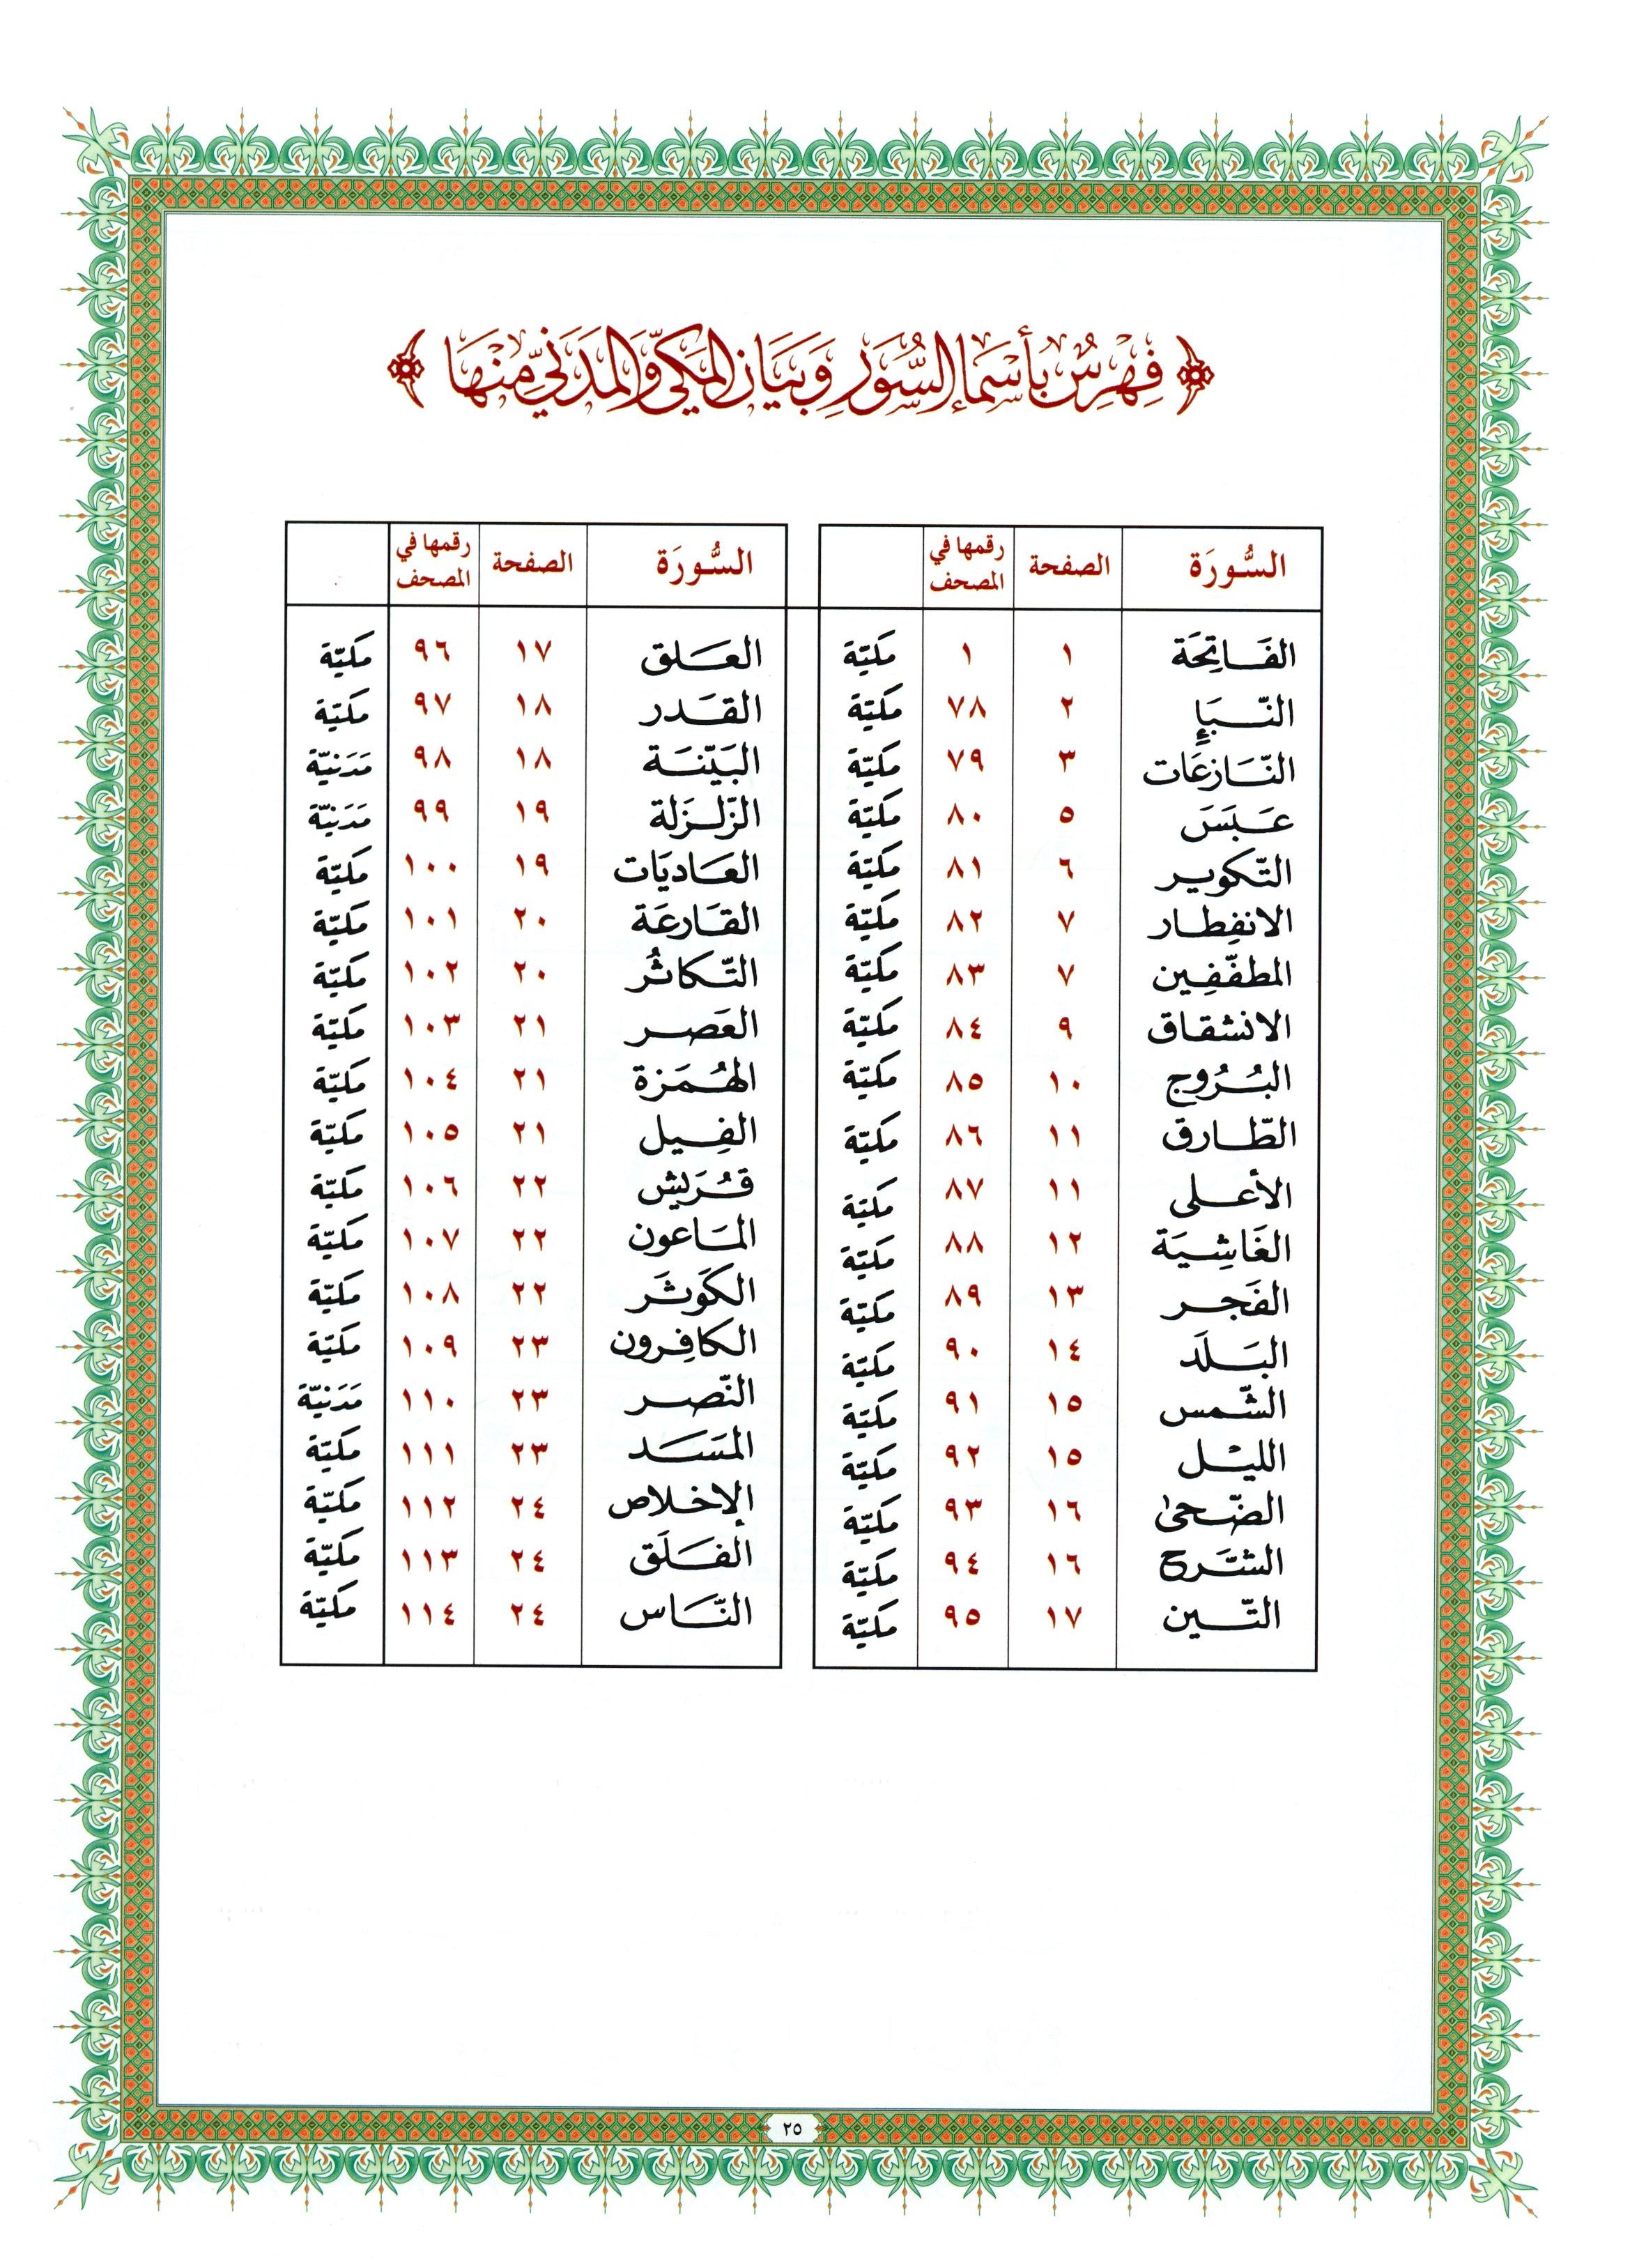 فِهْرِسٌ بِأَسْمَاءِ السُّوَرِ وَبَيَانِ المَكِّيِّ وَالمَدَنِيِّ مِنْهَا
السُّورَة الصفحة رقمها في المصحف
الفَاتِحَة ١ ١ مكيّة
النّبَإِ ٢ ٧٨ مكيّة
النّازِعَات ٣ ٧٩ مكيّة
عَبَسَ ٥ ٨٠ مكيّة
التّكوير ٦ ٨١ مكيّة
الانفِطار ٧ ٨٢ مكيّة
المطفّفِين ٧ ٨٣ مكيّة
الانشقاق ٩ ٨٤ مكيّة
البُرُوج ١٠ ٨٥ مكيّة
الطّارق ١١ ٨٦ مكيّة
الأعلى ١١ ٨٧ مكيّة
الغَاشِيَة ١٢ ٨٨ مكيّة
الفَجر ١٣ ٨٩ مكيّة
البَلَد ١٤ ٩٠ مكيّة
الشّمس ١٥ ٩١ مكيّة
الليْل ١٥ ٩٢ مكيّة
الضّحىٰ ١٦ ٩٣ مكيّة
الشَّرح ١٦ ٩٤ مكيّة
التّين ١٧ ٩٥ مكيّة
السُّورَة الصفحة رقمها في المصحف
العَلق ١٧ ٩٦ مكيّة
القَدر ١٨ ٩٧ مكيّة
البَيّنَة ١٨ ٩٨ مَدَنيّة
الزّلزَلة ١٩ ٩٩ مَدَنيّة
العَاديَات ١٩ ١٠٠ مكيّة
القَارعَة ٢٠ ١٠١ مكيّة
التّكاثُر ٢٠ ١٠٢ مكيّة
العَصر ٢١ ١٠٣ مكيّة
الهُمَزة ٢١ ١٠٤ مكيّة
الفِيل ٢١ ١٠٥ مكيّة
قُرَيش ٢٢ ١٠٦ مكيّة
المَاعون ٢٢ ١٠٧ مكيّة
الكَوثَر ٢٢ ١٠٨ مكيّة
الكافِرون ٢٣ ١٠٩ مكيّة
النّصر ٢٣ ١١٠ مَدَنيّة
المَسَد ٢٣ ١١١ مكيّة
الإخلاص ٢٤ ١١٢ مكيّة
الفَلَق ٢٤ ١١٣ مكيّة
النّاس ٢٤ ١١٤ مكيّة
٢٥